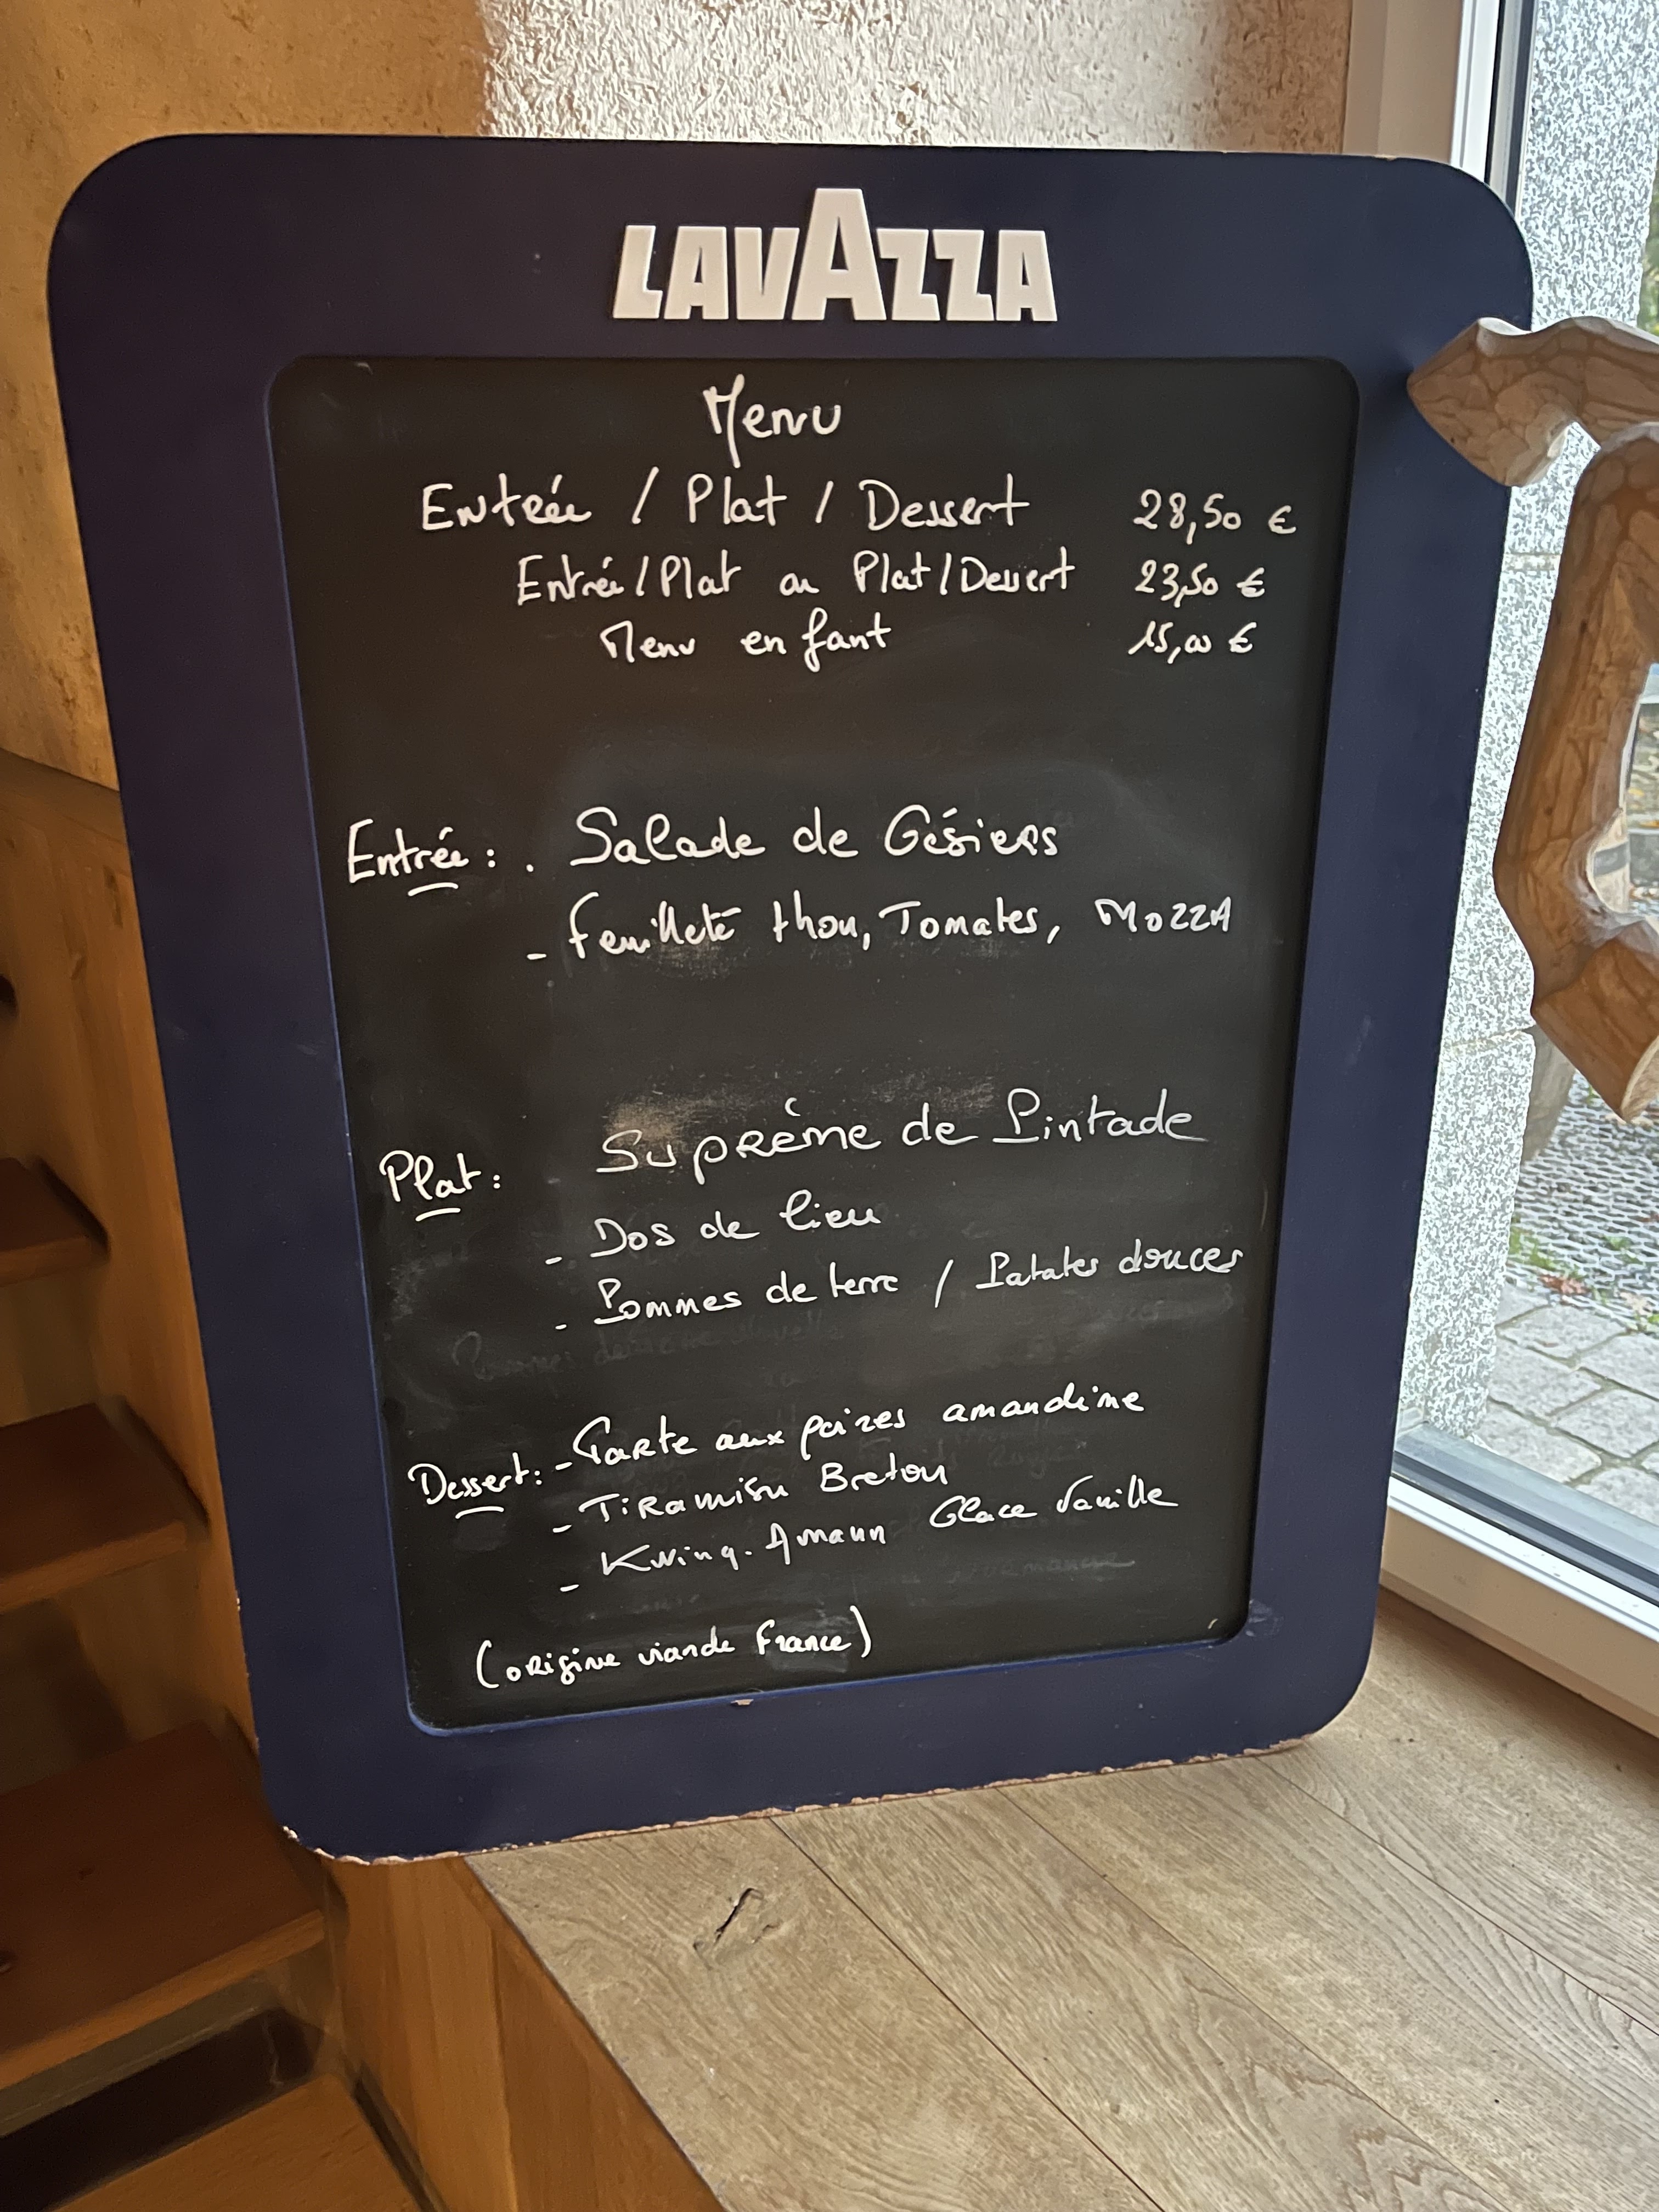 LAVAZZA
Menu
Entrée / Plat / Dessert 28,50 €
Entrée/Plat ou Plat/Dessert 23,50 €
Menu enfant 15,00 €
Entrée : . Salade de Gésiers
- feuilleté thon, Tomates, MOZZA
Plat : Suprème de Pintade
- Dos de lieu
- Pommes de terre / Patates douces
Dessert : - Tarte aux poires amandine
- Tiramisu Breton
- Kuing. Amann Glace Vanille
(origine viande France)